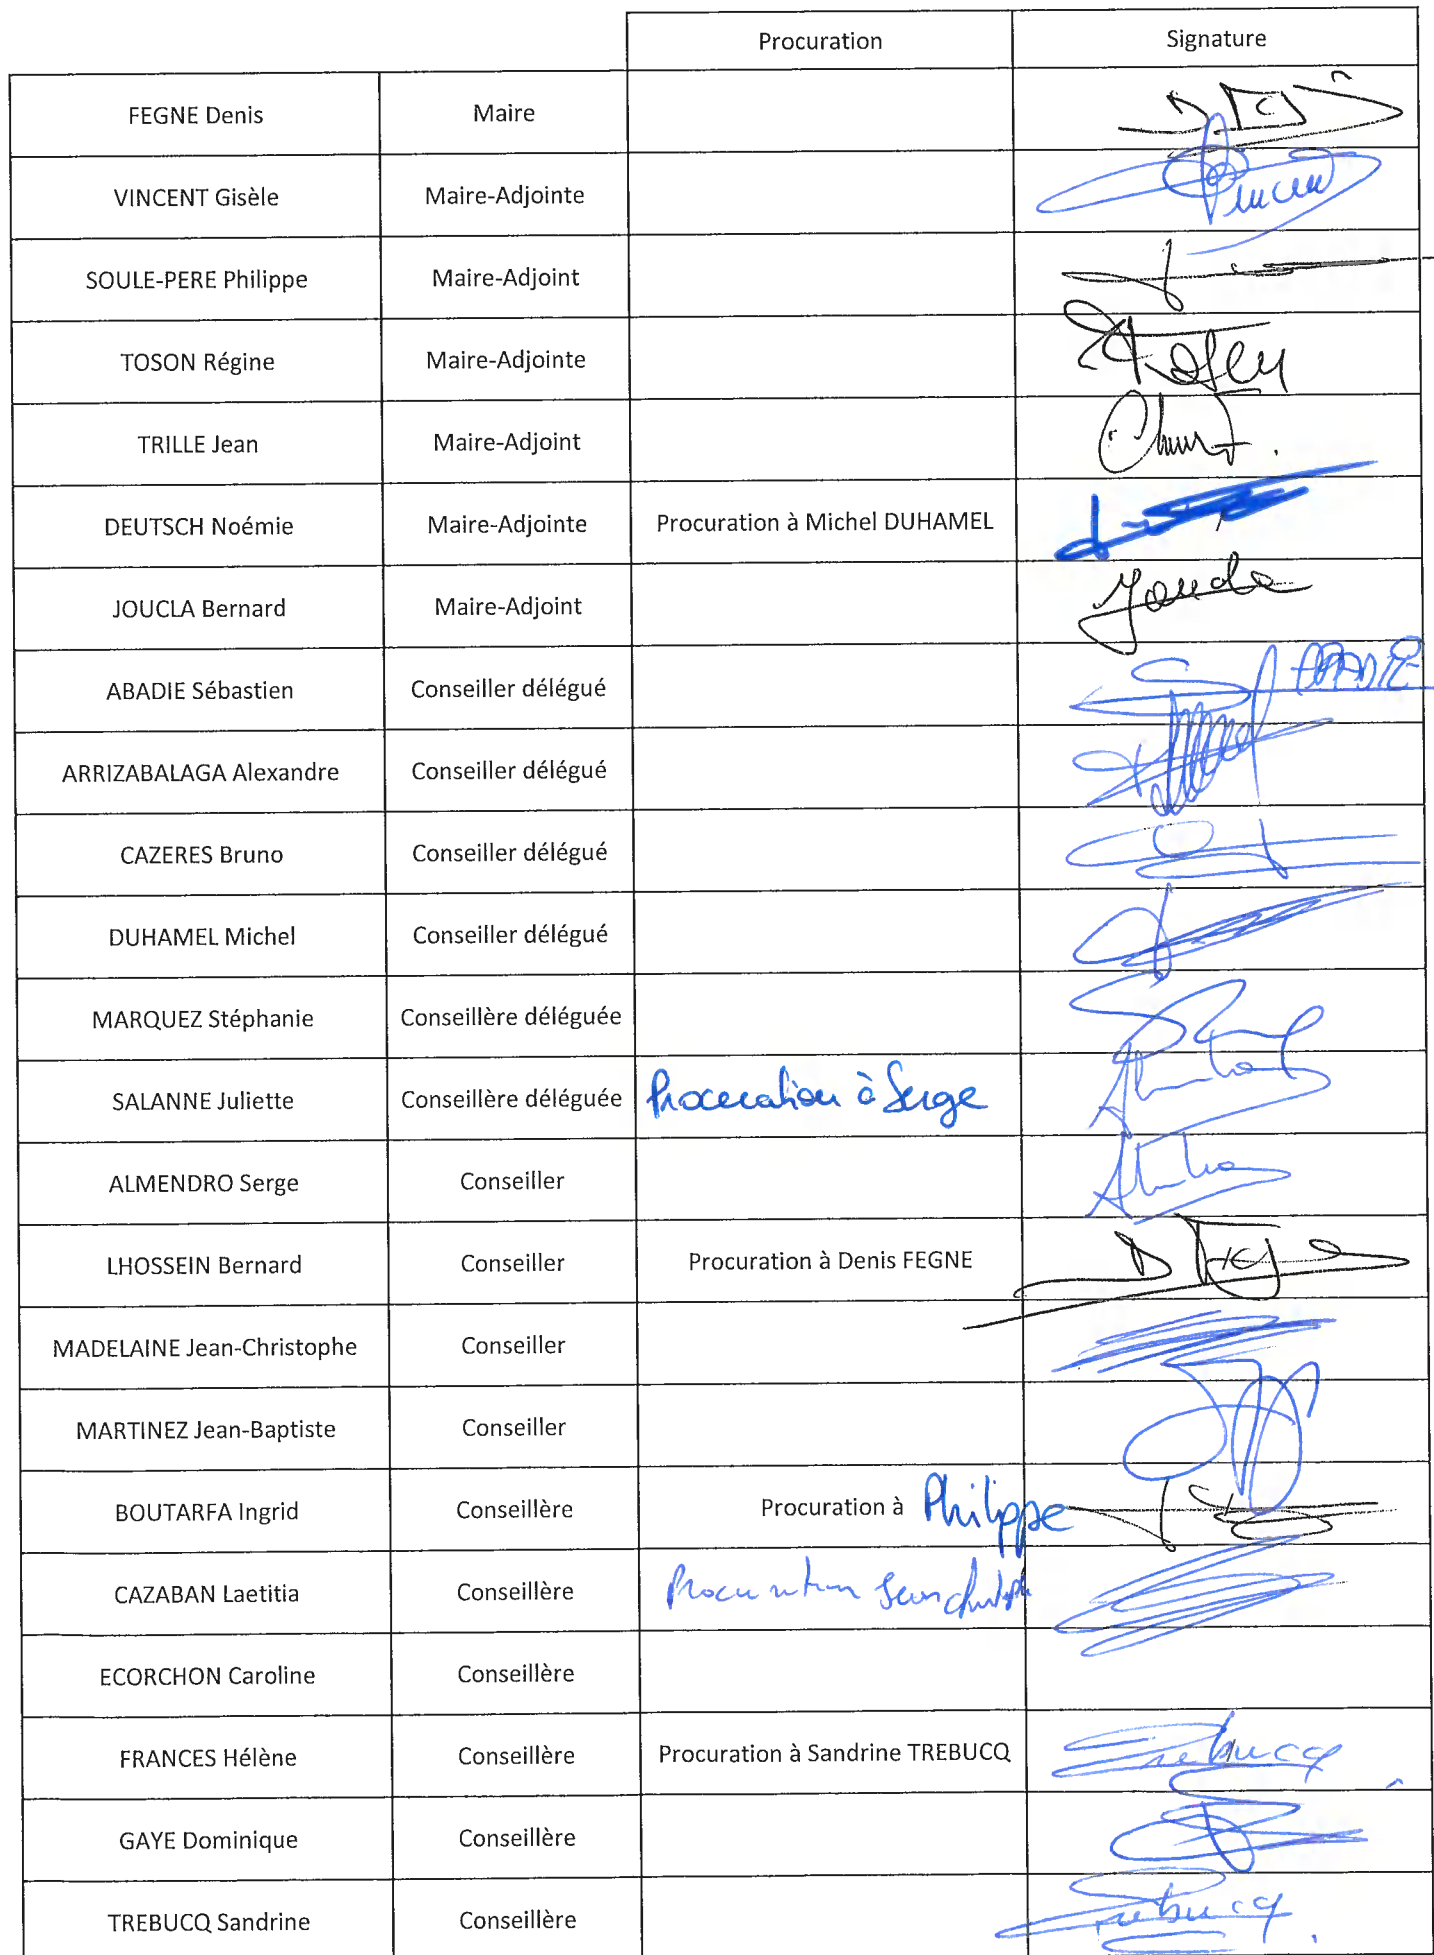 Procuration Signature
FEGNE Denis Maire
VINCENT Gisèle Maire-Adjointe Vincent
SOULE-PERE Philippe Maire-Adjoint
TOSON Régine Maire-Adjointe
TRILLE Jean Maire-Adjoint
DEUTSCH Noémie Maire-Adjointe Procuration à Michel DUHAMEL
JOUCLA Bernard Maire-Adjoint Joucla
ABADIE Sébastien Conseiller délégué ABADIE
ARRIZABALAGA Alexandre Conseiller délégué
CAZERES Bruno Conseiller délégué
DUHAMEL Michel Conseiller délégué
MARQUEZ Stéphanie Conseillère déléguée
SALANNE Juliette Conseillère déléguée Procuration à Serge
ALMENDRO Serge Conseiller
LHOSSEIN Bernard Conseiller Procuration à Denis FEGNE
MADELAINE Jean-Christophe Conseiller
MARTINEZ Jean-Baptiste Conseiller
BOUTARFA Ingrid Conseillère Procuration à Philippe
CAZABAN Laetitia Conseillère Procuration Jean christophe
ECORCHON Caroline Conseillère
FRANCES Hélène Conseillère Procuration à Sandrine TREBUCQ Trebucq
GAYE Dominique Conseillère
TREBUCQ Sandrine Conseillère Trebucq